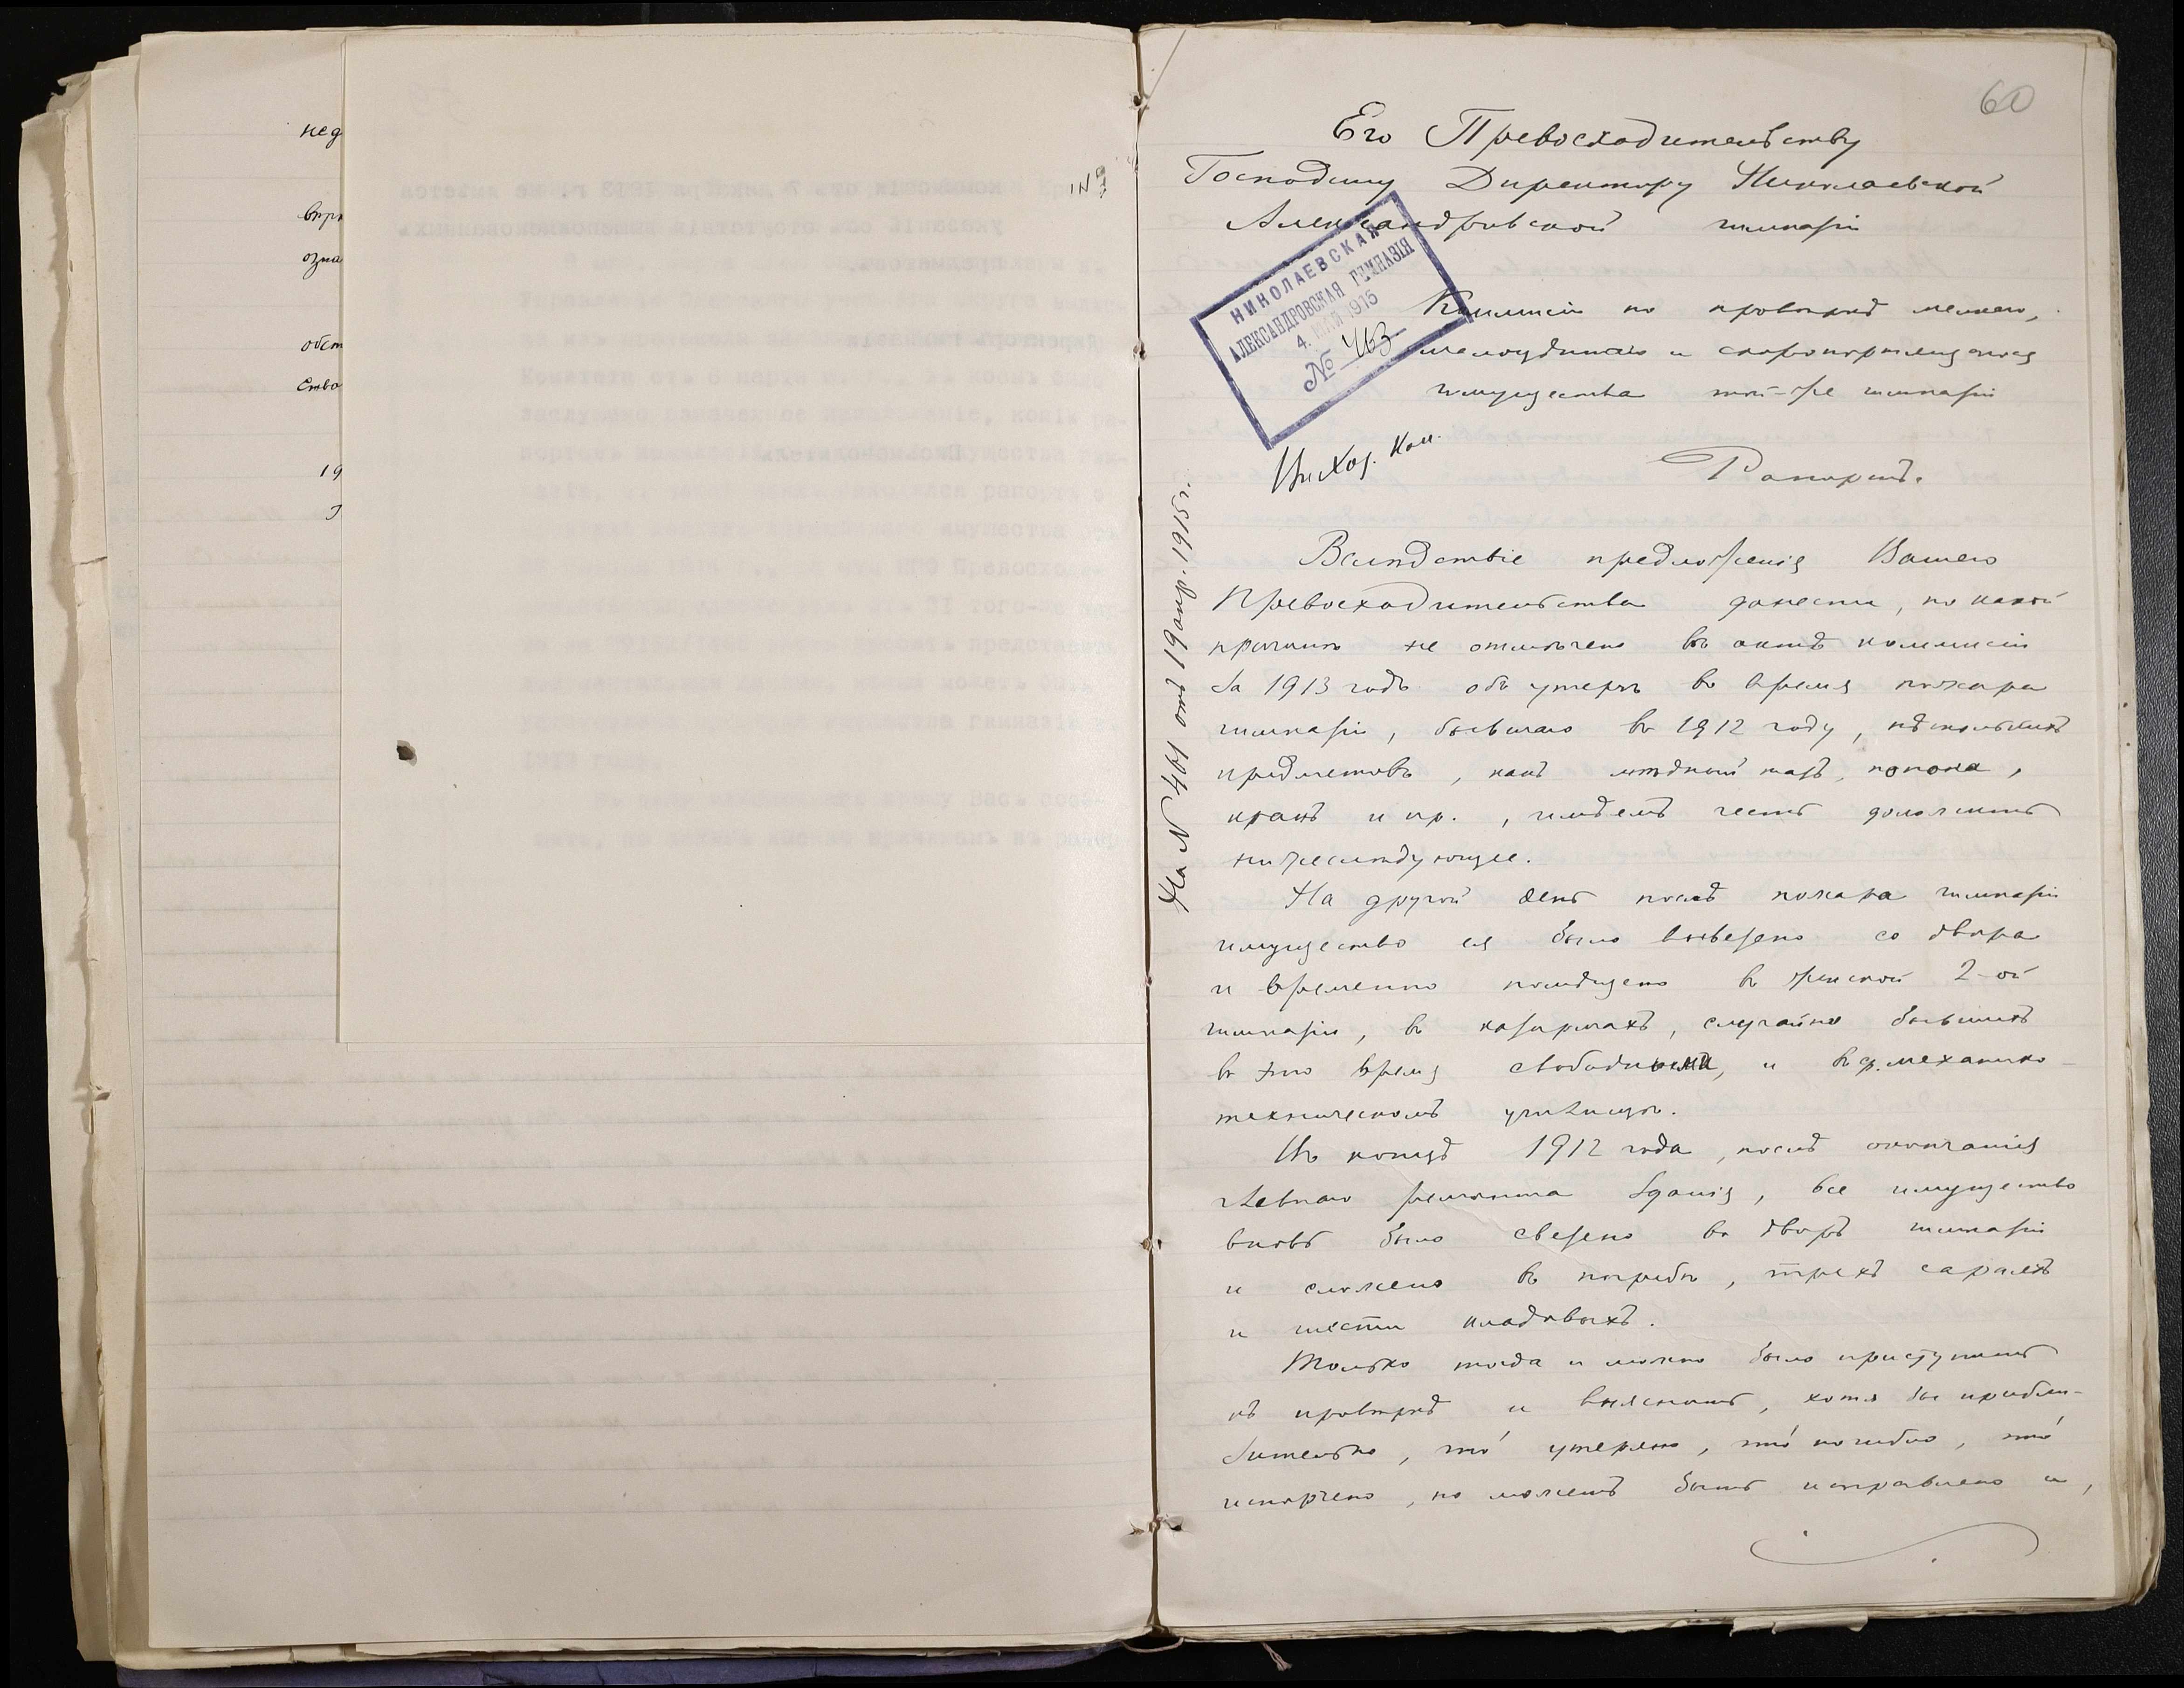 нед
впр
озна
обст
ство
19
60
Его Превосходительству
Господину Директору Николаевской
Александровской гимназіи
НИКОЛАЕВСКАЯ
АЛЕКСАНДРОВСКАЯ ГИМНАЗІЯ
4. МАЯ 1915
№ 463
Коммисіи по провѣркѣ мелкаго,
малоцѣннаго и скоропортящагося
имущества той-же гимназіи
Рапортъ.
На № 411 отъ 19 апр. 1915 г.
Вслѣдствіе предложенія Вашего
Превосходительства донести, по какой
причинѣ не отмѣчено въ актѣ коммисіи
за 1913 годъ объ утерѣ во время пожара
гимназіи, бывшаго въ 1912 году, нѣсколькихъ
предметовъ, какъ мѣдный тазъ, попона,
кранъ и пр., имѣемъ честь доложить
нижеслѣдующее.
На другой день послѣ пожара гимназіи
имущество ея было вывезено со двора
и временно помѣщено въ женской 2-ой
гимназіи, въ казармахъ, случайно бывшихъ
въ это время свободными, и въ ср. механико-
техническомъ училищѣ.
Въ концѣ 1912 года, послѣ окончанія
главнаго ремонта зданія, все имущество
вновь было свезено во дворъ гимназіи
и сложено въ погребѣ, трехъ сараяхъ
и шести кладовыхъ.
Только тогда и можно было приступить
къ провѣркѣ и выяснить, хотя бы прибли-
зительно, что́ утеряно, что́ погибло, что́
испорчено, но можетъ быть исправлено и,